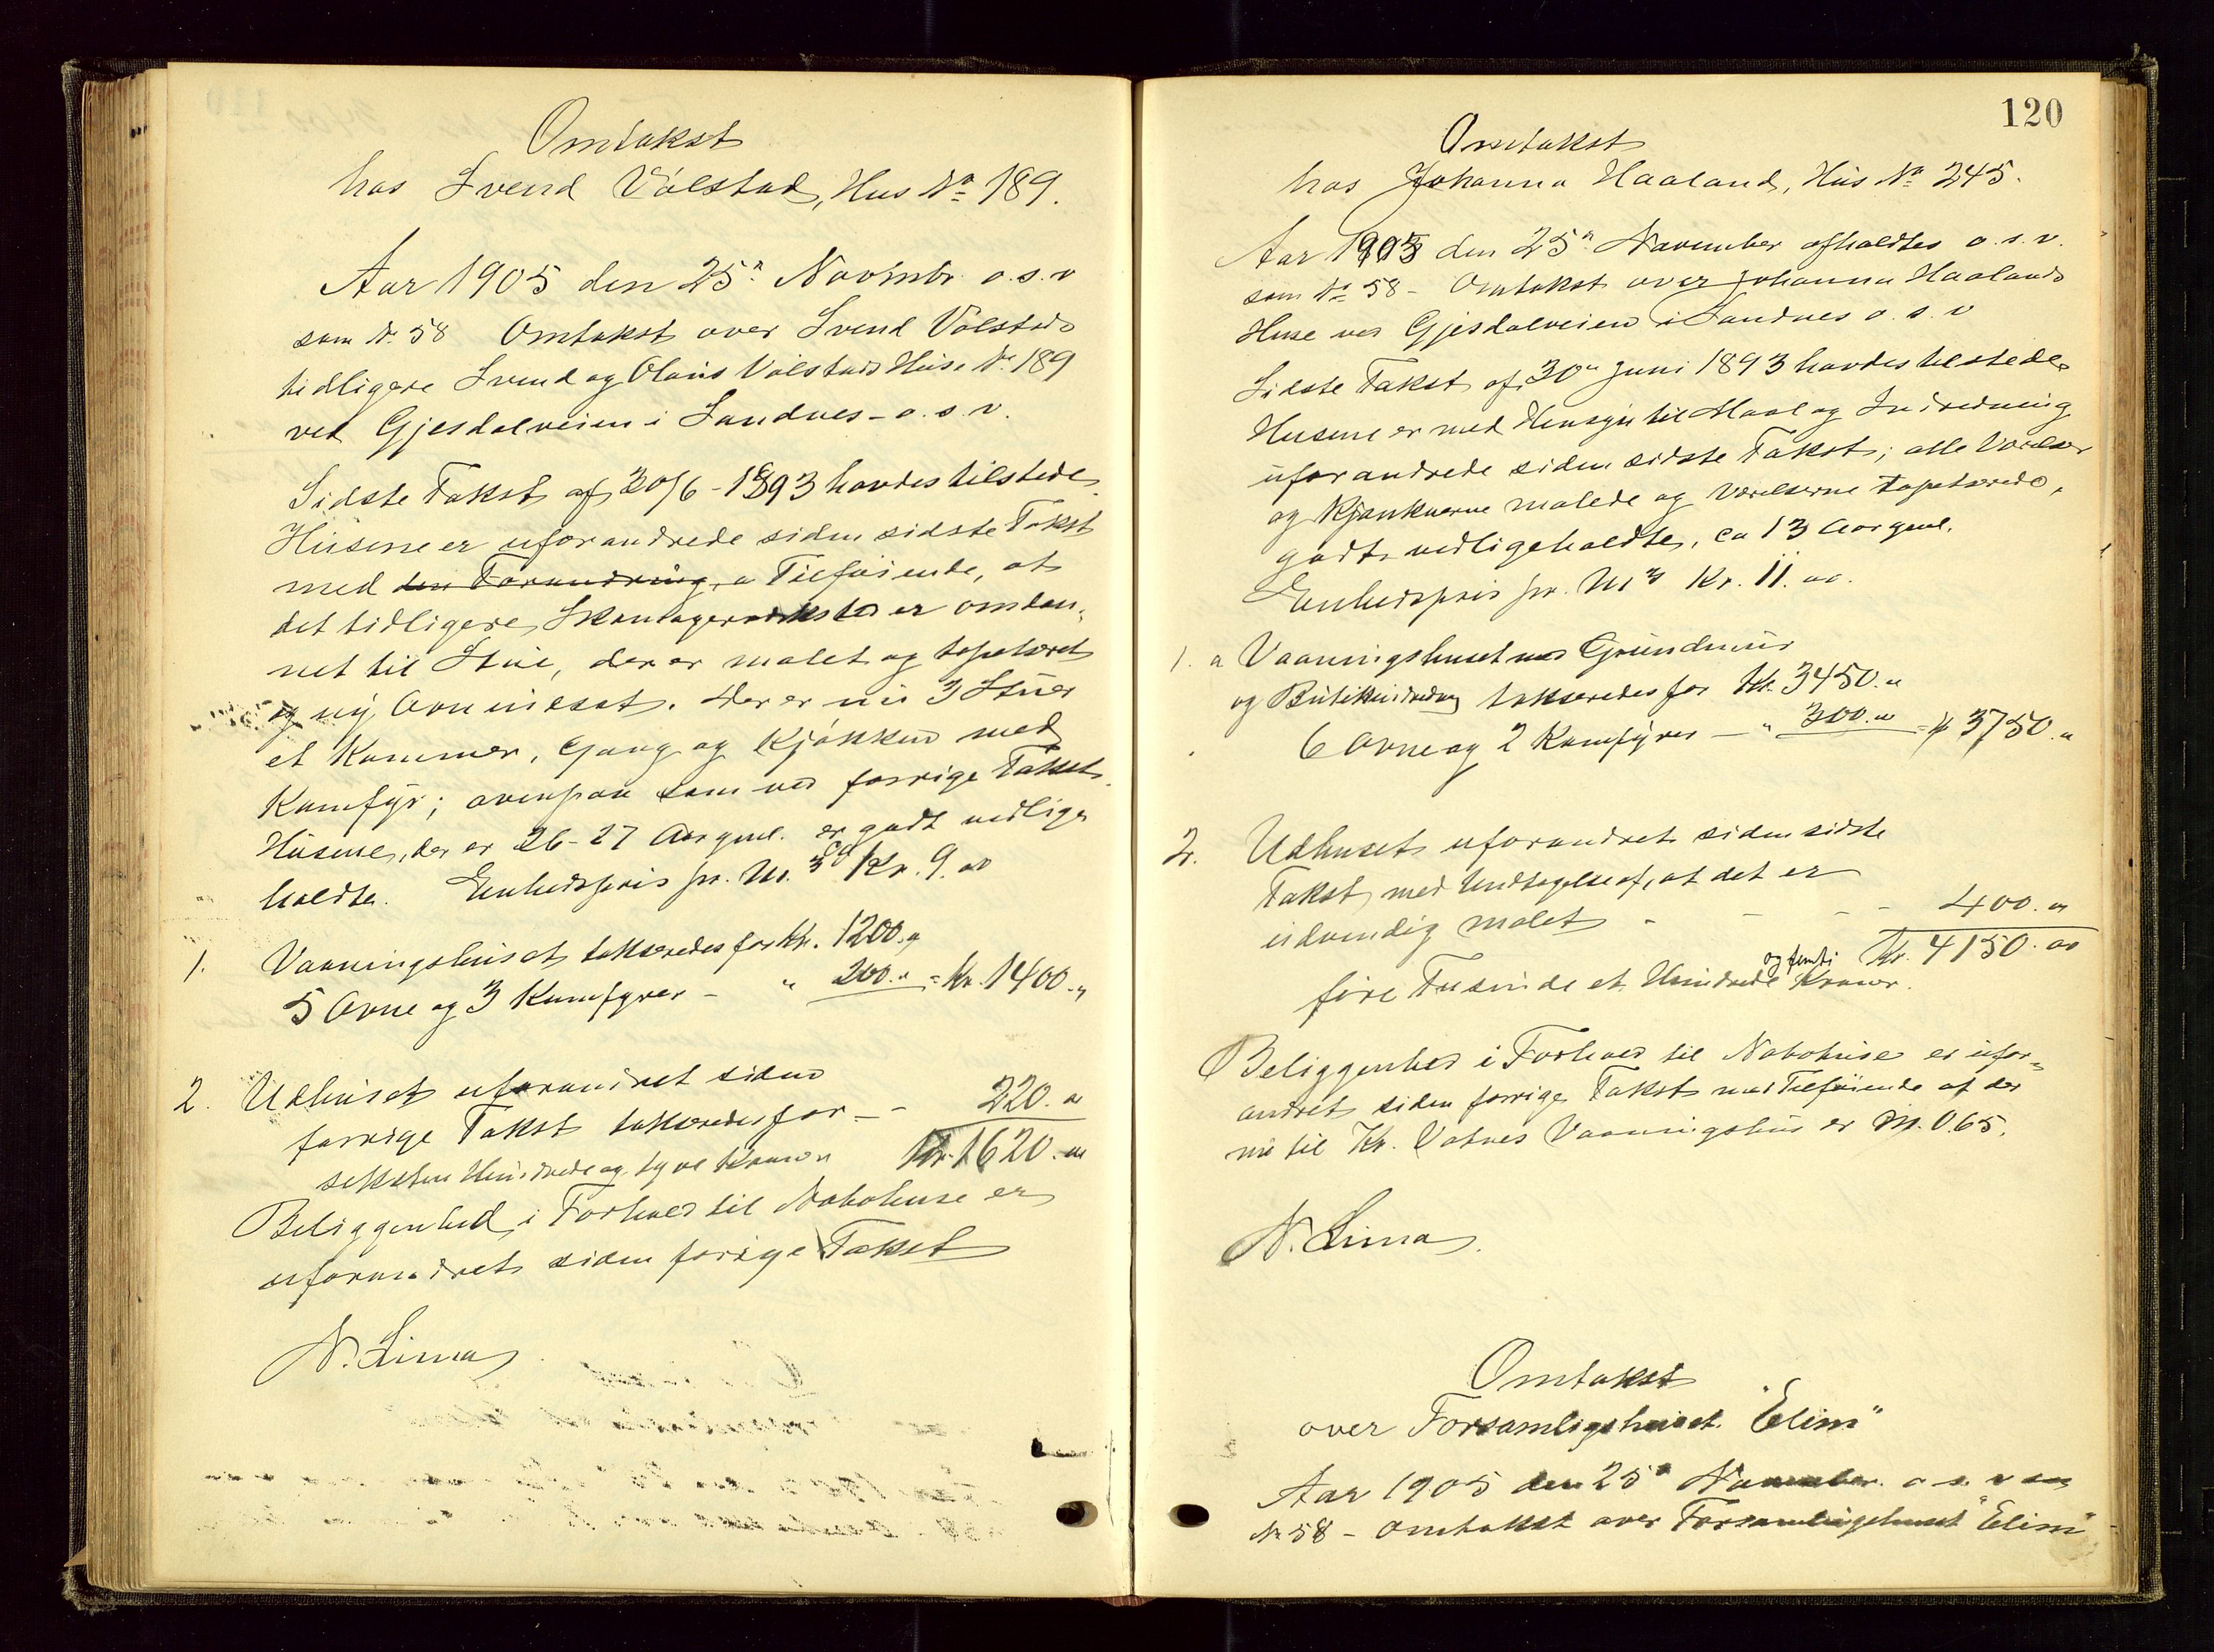 Omtakst
hos Svend Vølstad, Hus No 189.
Aar 1905 den 25n Novembr o.s.v
som N. 58 Omtakst over Svend Vølstads
tidligere Svend og Olaus Vølstads Huse No 189
ved Gjesdalveien i Sandnes - o.s.v.
Sidste Takst af 30/6 - 1893 havdes tilstede.
Husene er uforandrede siden sidste Takst
med den Forandring, Tilføiende, at
det tidligere Skomagerværksted er omdan-
net til Stue, der er malet og tapetseret
og ny Ovn indsat. Der er nu 3 Stuer
et Kammer, Gang og Kjøkken med
Komfyr; ovenpaa som ved forrige Takst.
Husene, der er 26-27 Aar gml. er godt vedlige
holdte. Enhedspris pr. M.3 ca Kr. 9.00
1. Vaaningshuset takseredes for Kr. 1200.„
5 Ovne og 3 Komfyrer - „ 200.„ = Kr. 1400.„
2. Udhuset uforandret siden
forrige Takst takseredes for - - 220.„
seksten Hundrede og tyve Kroner Kr. 1620.00
Beliggenhed i Forhold til Nabohuse er
uforandret siden forige Takst
N. Lima
120
Omtakst
hos Johanna Haaland, Hus No 245.
Aar 1905 den 25n November afholdtes o.s.v.
som No 58 - Omtakst over Johanna Haalands
Huse ved Gjesdalveien i Sandnes o.s.v
Sidste Takst af 30n Juni 1893 havdes tilstede.
Husene er med Hensyn til Maal og Indredning
uforandrede siden sidste Takst; alle Værelser
og Kjøknerne malede og Værelserne tapetserede,
godt vedligeholdte, ca 13 Aar gml.
Enhedspris pr. M3 Kr. 11.00.
1. a Vaaningshuset med Grundmur
og Butikindredning takseredes for Kr. 3450.„
6 Ovne og 2 Komfyrer - „ 300.„ = Kr 3750.„
2. Udhuset uforandret siden sidste
Takst, med Undtagelse af, at det er
udvendig malet - - - - 400.„
og femti Kr. 4150.00
fire Tusinde et Hundrede Kroner.
Beliggenhed i Forhold til Nabohuse er ufor-
andret siden forrige Takst med Tilføiende at der
nu til Kr. Vatnes Vaaningshus er M. 0.65.
N. Lima
Omtakst
over Forsamligshuset "Elim"
Aar 1905 den 25n November o.s.v som
No 58 - Omtakst over Forsamlingshuset "Elim"